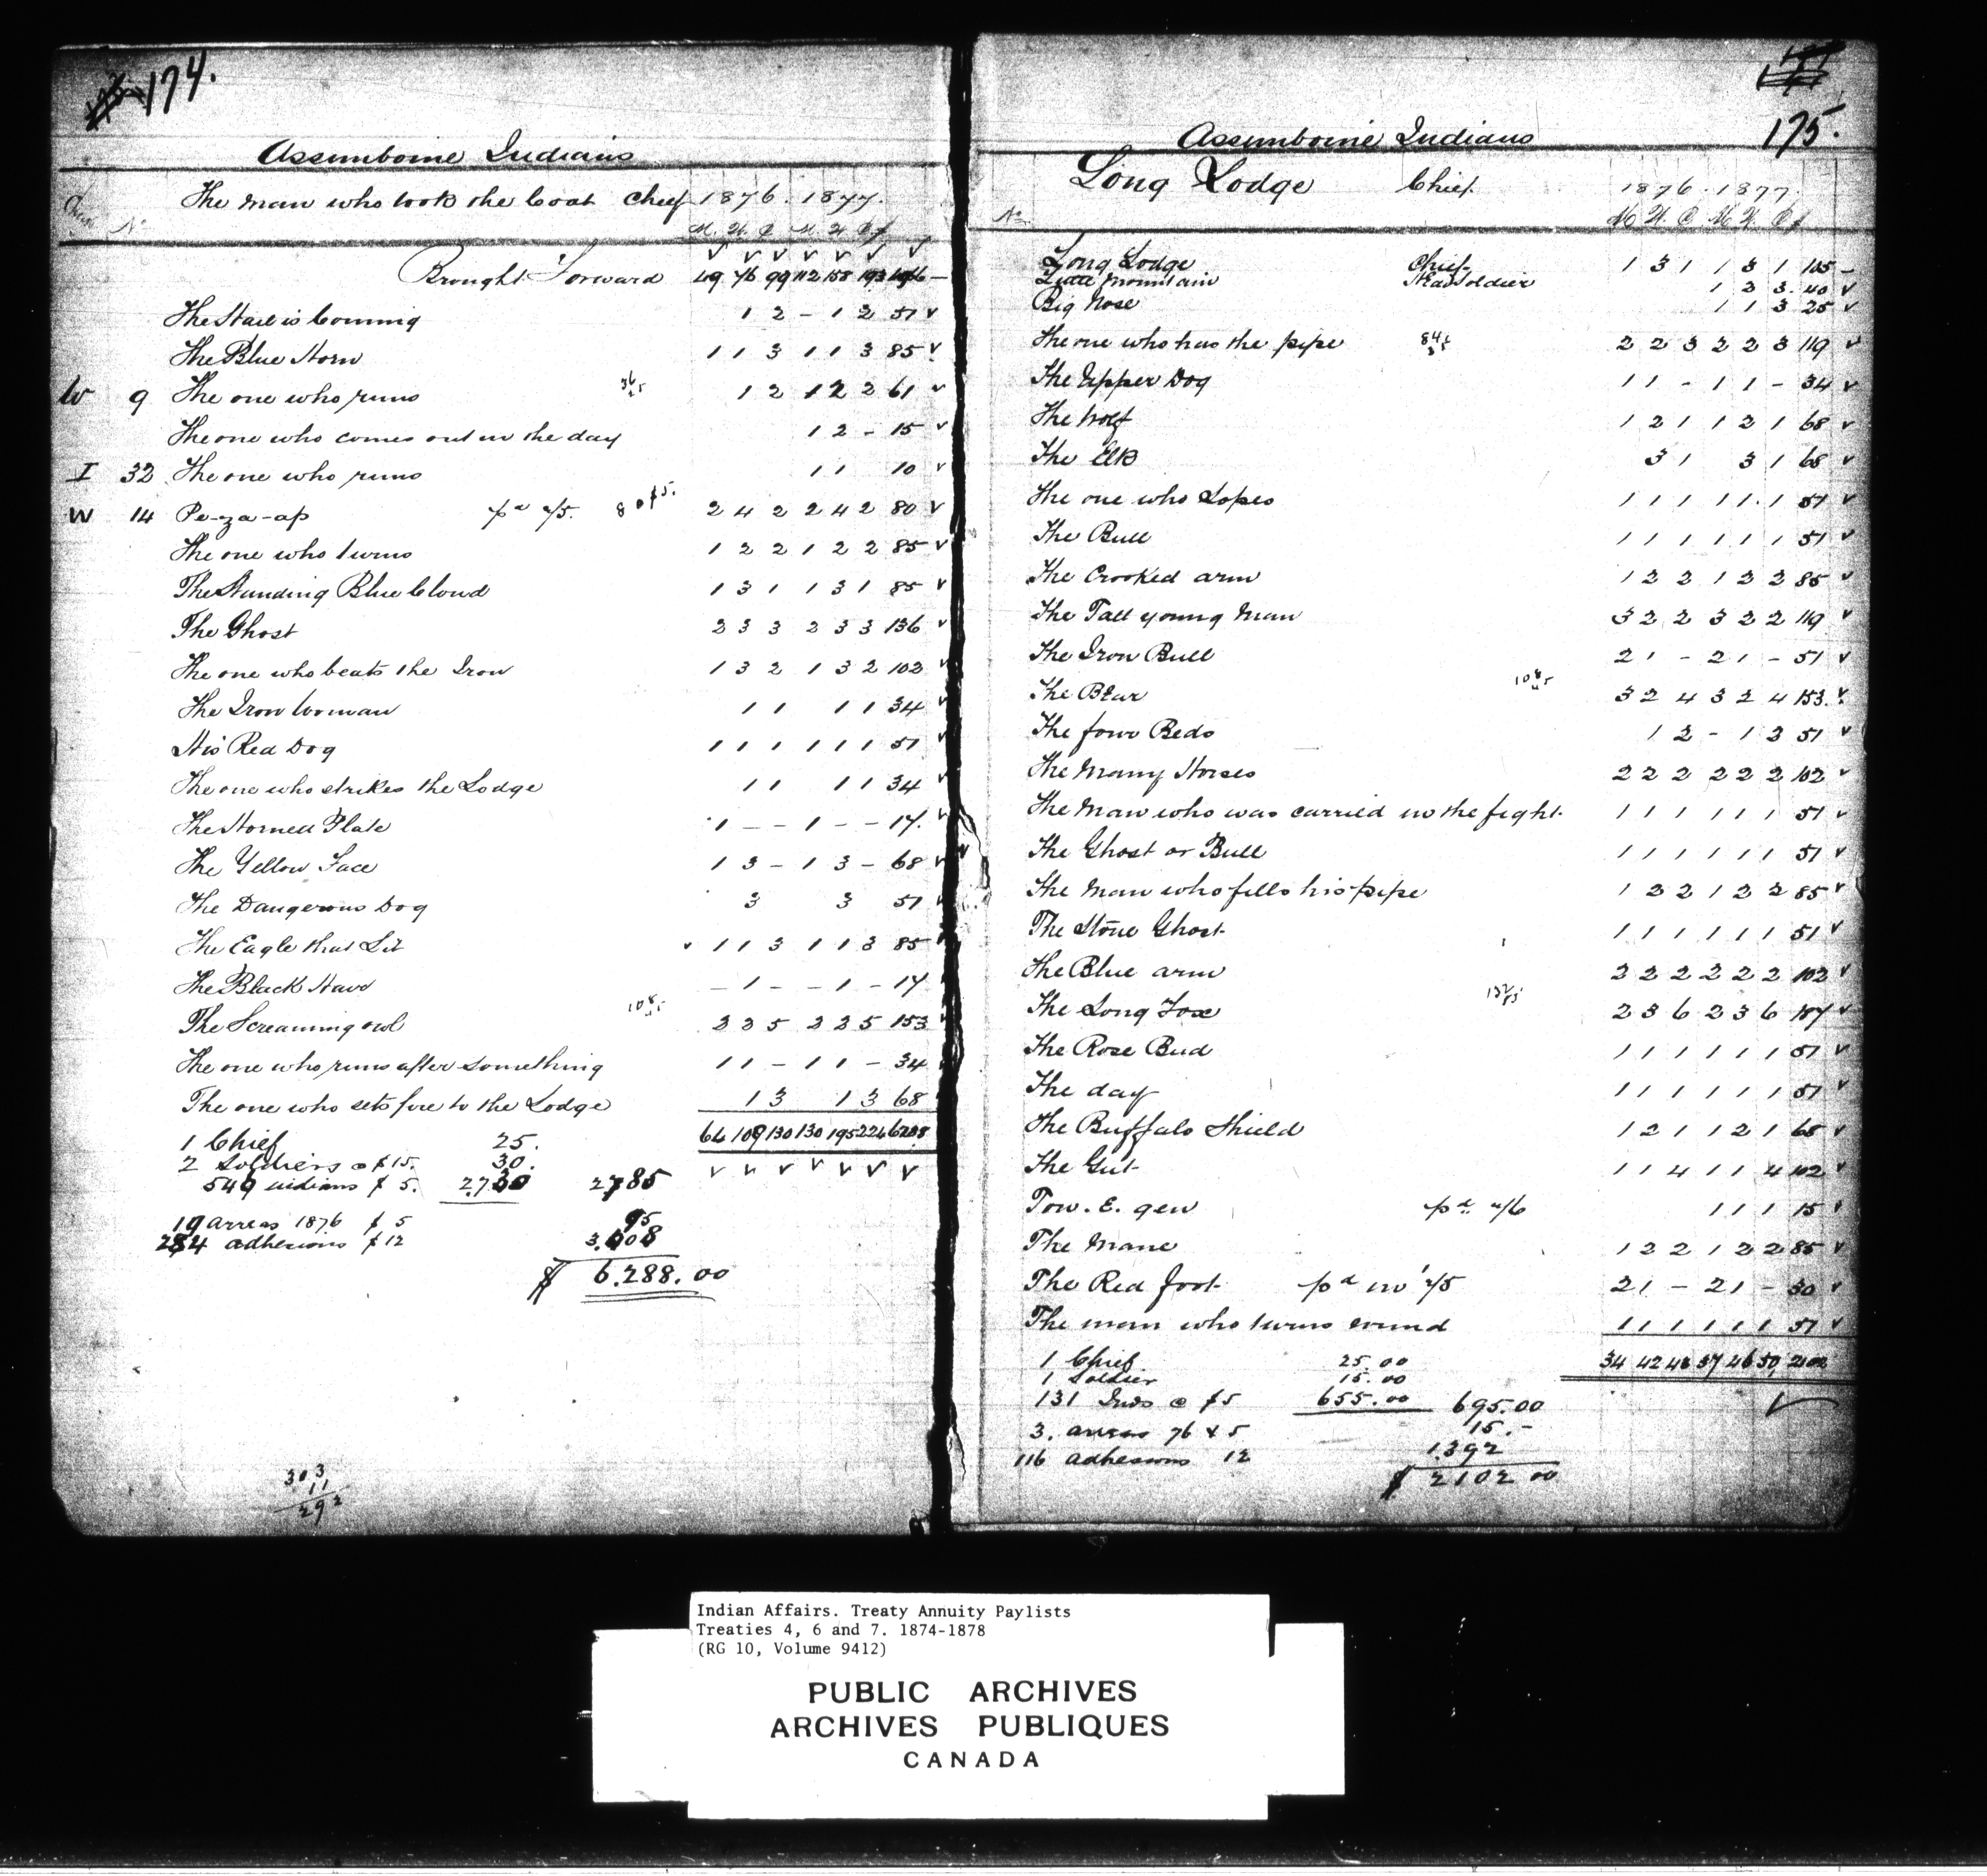 174.
Assiniboine Indians
The Man who took the Coat Chief 1876. 1877.
No M. W. C M. W C $
Brought Forward 49 76 99 112 158 193
The Hail is Coming 1 2 - 1 2 51
The Blue Horn 1 1 3 1 1 3 85
W 9 The one who runs 1 2 1 2 2 61
The one who comes out in the day 1 2 - 15
I 32 The one who runs 1 1 10
W 14 Pe-za-ap pd 2 4 2 2 4 2 80
The one who turns 1 2 2 1 2 2 85
The Standing Blue Cloud 1 3 1 1 3 1 85
The Ghost 2 3 3 2 3 3 136
The one who beats the Iron 1 3 2 1 3 2 102
The Iron Woman 1 1 1 1 34
His Red Dog 1 1 1 1 1 1 51
The one who strikes the Lodge 1 1 1 1 34
The Horned Plate 1 - - 1 - - 17.
The Yellow Face 1 3 - 1 3 - 68
The Dangerous Dog 3 3 51
The Eagle that Sit 1 1 3 1 1 3 85
The Black Hawd - 1 - - 1 - 17
The Screaming owl 2 2 5 2 2 5 153
The one who runs after something 1 1 - 1 1 - 34
The one who sets fire to the Lodge 1 3 1 3 68
64 109 130 130 195 224 6288
1 Chief 25.
2 Soldiers @ $15. 30.
549 indians $ 5. 2730 2785
19 arreas 1876 $ 5 95
284 adhesions $ 12 3.408
$ 6.288.00
303
11
292
175.
Assinboine Indians
Long Lodge Chief 1876. 1877.
No M W. C M W. C $
Long Lodge Chief 1 3 1 1 3 1 105
Little Mountain Head Soldier 1 2 3 40
Big Nose 1 1 3 25
The one who has the pipe 2 2 3 2 2 3 119
The Upper Dog 1 1 - 1 1 - 34
The Wolf 1 2 1 1 2 1 68
The Elk 3 1 3 1 68
The one who Lopes 1 1 1 1 1 1 51
The Bull 1 1 1 1 1 1 51
The Crooked arm 1 2 2 1 2 2 85
The Tall young Man 3 2 2 3 2 2 119
The Iron Bull 2 1 - 2 1 - 51
The Bear 3 2 4 3 2 4 153.
The four Beds 1 2 - 1 2 51
The Many Horses 2 2 2 2 2 2 102
The Man who was carried in the fight. 1 1 1 1 1 1 51
The Ghost or Bull 1 1 1 1 1 1 51
The Man who fills his pipe 1 2 2 1 2 2 85
The Stone Ghost 1 1 1 1 1 1 51
The Blue arm 2 2 2 2 2 2 102
The Long Fox 2 3 6 2 3 6 187
The Rose Bud 1 1 1 1 1 1 51
The day 1 1 1 1 1 1 51
The Buffalo Shield 1 2 1 1 2 1 68
The Gut 1 1 4 1 1 4 102
Tow. E. gew pd 1 1 1 15
The Mane 1 2 2 1 2 2 85
The Red foot pd in 2 1 - 2 1 - 30
The man who turns round 1 1 1 1 1 1 51
34 42 48 37 46 50 2102
1 Chief 25.00
1 Soldier 15.00
131 Inds @ $5 655.00 695.00
3. arreas 76 x 5 15.-
116 adhesions 12 1.392
$ 2102 00
Indian Affairs. Treaty Annuity Paylists
Treaties 4, 6 and 7. 1874-1878
(RG 10, Volume 9412)
PUBLIC ARCHIVES
ARCHIVES PUBLIQUES
CANADA